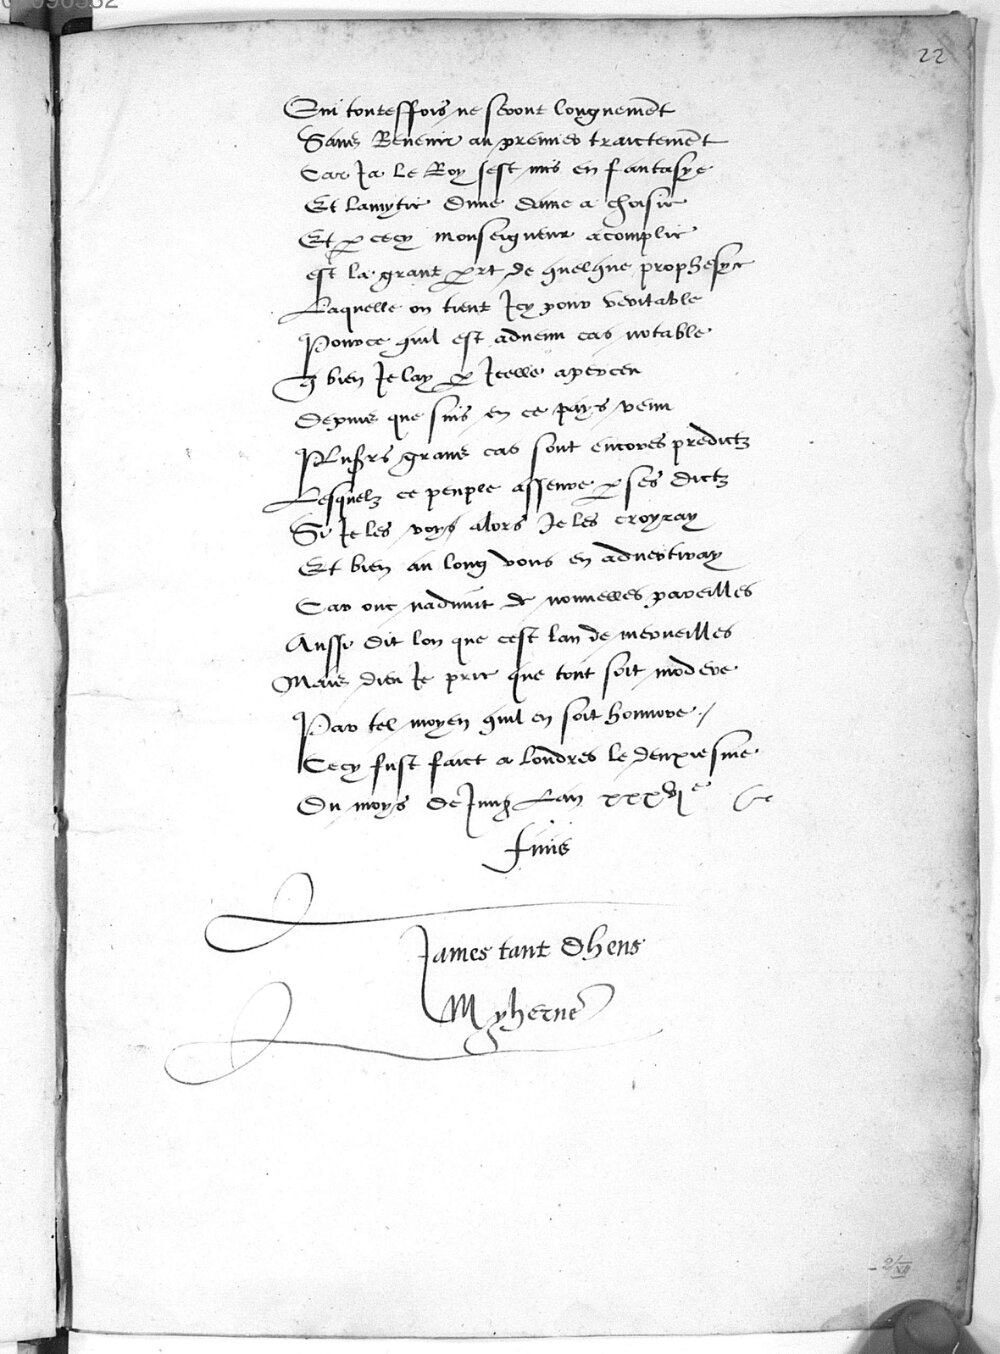 22
Qui touteffois ne seront longuemẽt
Sans Revenir au premier traictemẽt
Car Ja le Roy sest mis en fantasye
Et lamytie dune dame a choisie
Et p cecy monseigneur acomplie
est la grant prt de quelque prophesye
Laquelle on tient Jcy pour veritable
Pource quil est advenu cas notable
q bien Je lay p Jcelle aperceu
Depuis que suis en ce pays venu
Plusrs grans cas sont encores predictz
Lesquelz ce peuple asseure p ses dictz
Si Je les voys alors Je les croyray
Et bien au long vous en advertiray
Car onc nadvint de nouvelles pareilles
Aussi dit lon que cest lan de merveilles
Mais dieu Je prie que tout soit modere
Par tel moyen quil en soit honnore /
Cecy fust faict a londres le deuxiesme
Du moys de Juing Lan xxxvj e &c
finis
James tant dhens
Myherne
2/XII